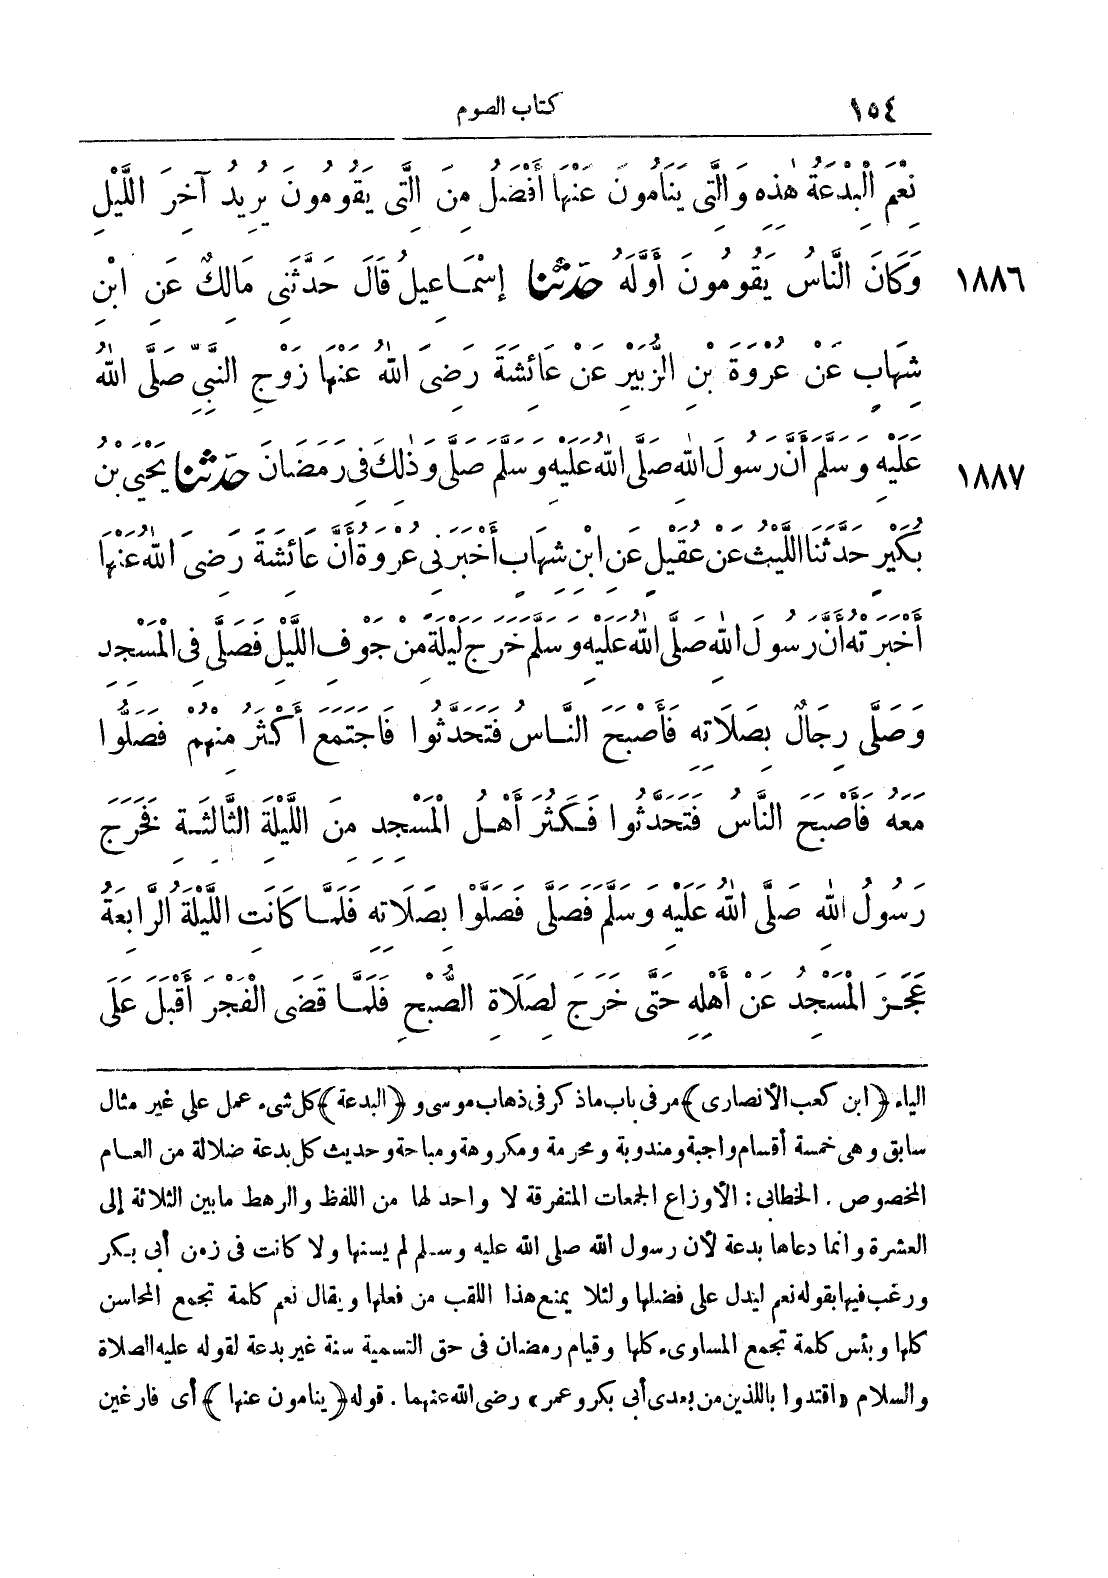 ١٥٤ كتاب الصوم
نِعْمَ الْبِدْعَةُ هٰذِهِ وَالَّتِى يَنَامُونَ عَنْهَا أَفْضَلُ مِنَ الَّتِى يَقُومُونَ يُرِيدُ آخِرَ اللَّيْلِ
١٨٨٦ وَكَانَ النَّاسُ يَقُومُونَ أَوَّلَهُ حَدَّثَنَا إِسْمَاعِيلُ قَالَ حَدَّثَنِى مَالِكٌ عَنِ ابْنِ
شِهَابٍ عَنْ عُرْوَةَ بْنِ الزُّبَيْرِ عَنْ عَائِشَةَ رَضِىَ اللّٰهُ عَنْهَا زَوْجِ النَّبِىِّ صَلَّى اللّٰهُ
١٨٨٧ عَلَيْهِ وَسَلَّمَ أَنَّ رَسُولَ اللّٰهِ صَلَّى اللّٰهُ عَلَيْهِ وَسَلَّمَ صَلَّى وَذٰلِكَ فِى رَمَضَانَ حَدَّثَنَا يَحْيَى بْنُ
بُكَيْرٍ حَدَّثَنَا اللَّيْثُ عَنْ عُقَيْلٍ عَنِ ابْنِ شِهَابٍ أَخْبَرَنِى عُرْوَةُ أَنَّ عَائِشَةَ رَضِىَ اللّٰهُ عَنْهَا
أَخْبَرَتْهُ أَنَّ رَسُولَ اللّٰهِ صَلَّى اللّٰهُ عَلَيْهِ وَسَلَّمَ خَرَجَ لَيْلَةً مِنْ جَوْفِ اللَّيْلِ فَصَلَّى فِى الْمَسْجِدِ
وَصَلَّى رِجَالٌ بِصَلَاتِهِ فَأَصْبَحَ النَّاسُ فَتَحَدَّثُوا فَاجْتَمَعَ أَكْثَرُ مِنْهُمْ فَصَلُّوا
مَعَهُ فَأَصْبَحَ النَّاسُ فَتَحَدَّثُوا فَكَثُرَ أَهْلُ الْمَسْجِدِ مِنَ اللَّيْلَةِ الثَّالِثَةِ فَخَرَجَ
رَسُولُ اللّٰهِ صَلَّى اللّٰهُ عَلَيْهِ وَسَلَّمَ فَصَلَّى فَصَلَّوْا بِصَلَاتِهِ فَلَمَّا كَانَتِ اللَّيْلَةُ الرَّابِعَةُ
عَجَزَ الْمَسْجِدُ عَنْ أَهْلِهِ حَتَّى خَرَجَ لِصَلَاةِ الصُّبْحِ فَلَمَّا قَضَى الْفَجْرَ أَقْبَلَ عَلَى
الياء ﴿ابن كعب الأنصارى﴾ مر فى باب ماذكر فى ذهاب موسى و ﴿البدعة﴾ كل شىء عمل على غير مثال
سابق وهى خمسة أقسام واجبة ومندوبة ومحرمة ومكروهة ومباحة وحديث كل بدعة ضلالة من العام
المخصوص . الخطابى : الأوزاع الجمعات المتفرقة لا واحد لها من اللفظ والرهط مابين الثلاثة إلى
العشرة وانما دعاها بدعة لأن رسول الله صلى الله عليه وسلم لم يسنها ولا كانت فى زمن أبى بكر
ورغب فيها بقوله نعم ليدل على فضلها ولئلا يمنع هذا اللقب من فعلها ويقال نعم كلمة تجمع المحاسن
كلها وبئس كلمة تجمع المساوىء كلها وقيام رمضان فى حق التسمية سنة غير بدعة لقوله عليه الصلاة
والسلام «اقتدوا باللذين من بعدى أبى بكر وعمر» رضى الله عنهما . قوله ﴿ينامون عنها﴾ أى فارغين